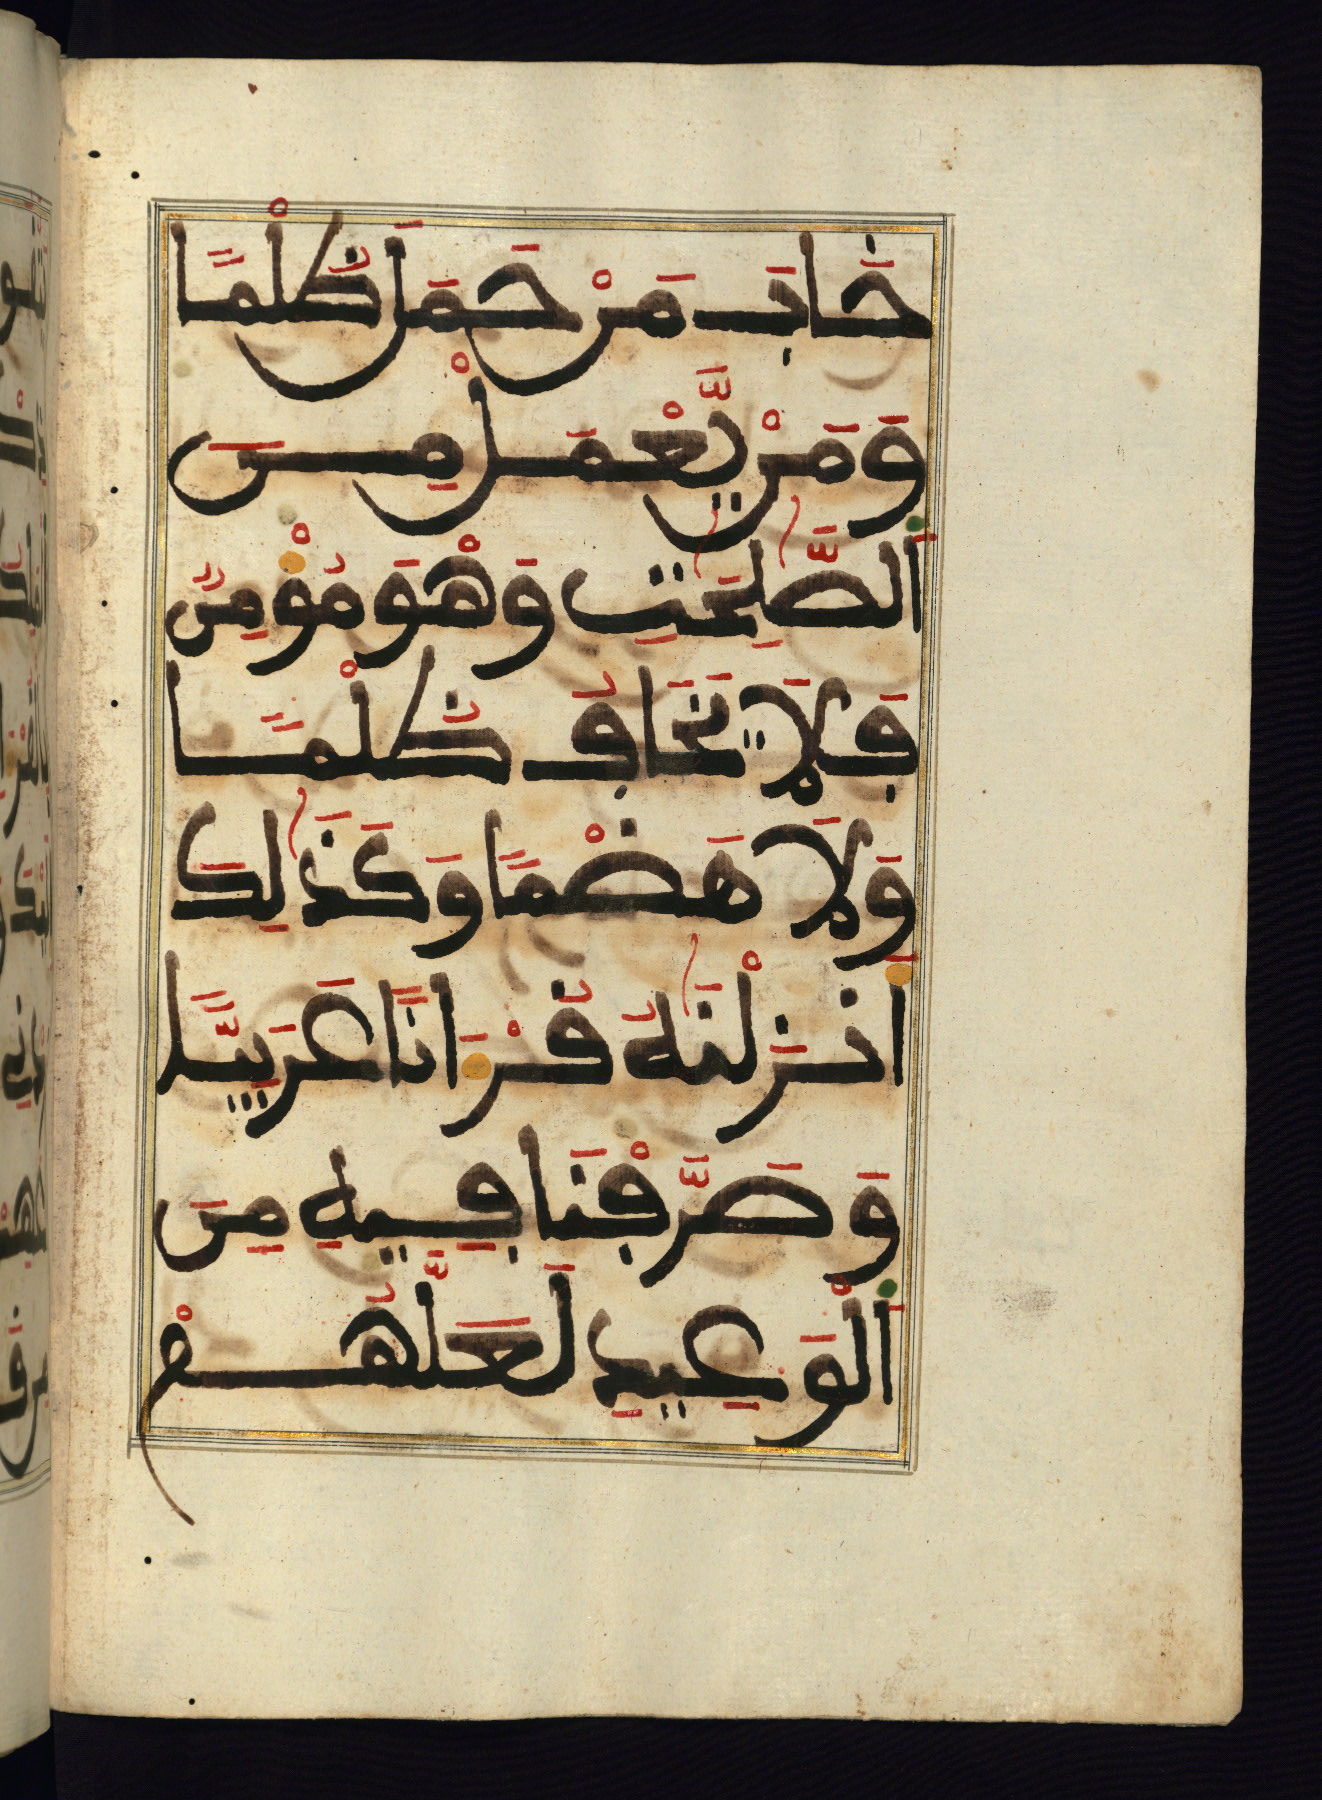 خَابَ مَنْ حَمَلَ ظُلْمًا
وَمَنْ يَّعْمَلْ مِنَ
اَ۬لصَّٰلِحَٰتِ وَهْوَ مُؤْمِنٌ
فَلَا يَخَافُ ظُلْمًا
وَلَا هَضْمًا وَكَذَٰلِكَ
أَنزَلْنَٰهُ قُرْءَانًا عَرَبِيًّا
وَصَرَّفْنَا فِيهِ مِنَ
اَ۬لْوَعِيدِ لَعَلَّهُمْ